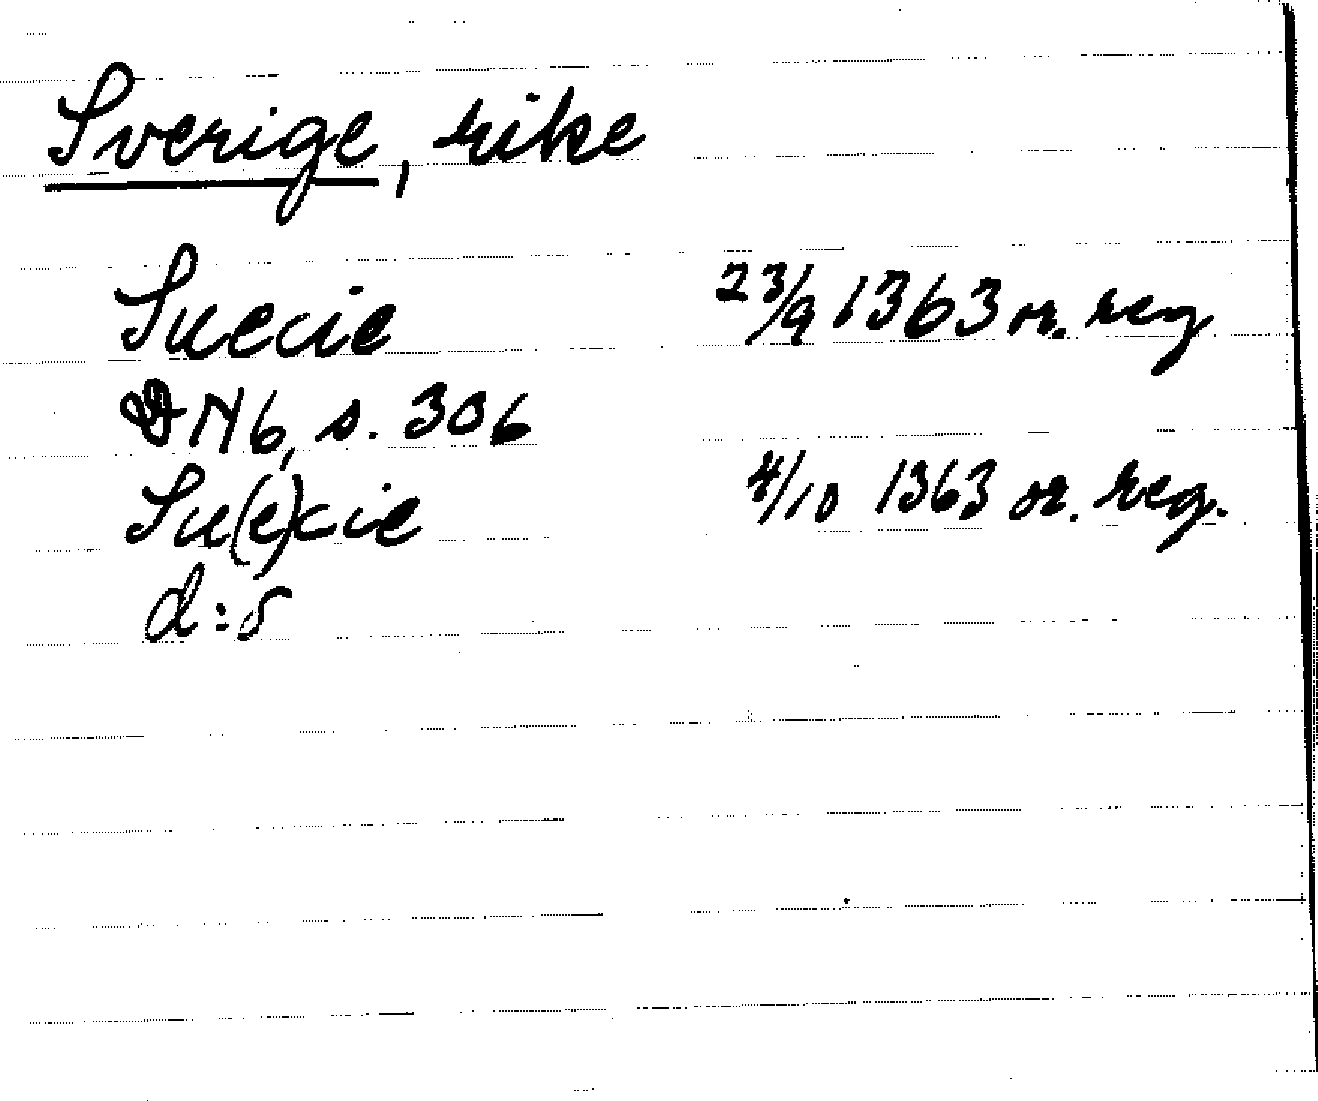 Sverige, rike
Suecie 23/9 1363 or. reg
DN6, s. 306
Su(e)cie 4/10 1363 or. reg.
d:o